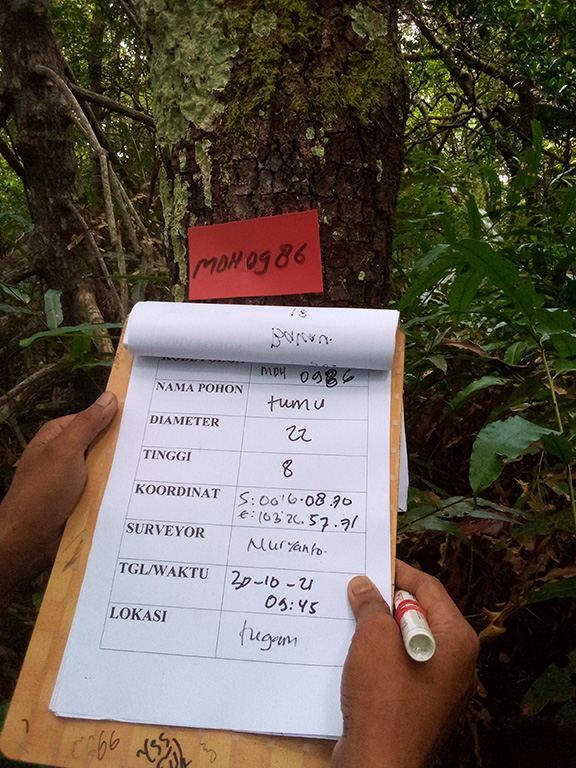 MDH 0986
18
KODE POHON MDH 0986
NAMA POHON tumu
DIAMETER 22
TINGGI 8
KOORDINAT S: 00°16.08.70
E: 103°26.57.91
SURVEYOR Nuryanto.
TGL/WAKTU 30-10-21
09:45
LOKASI